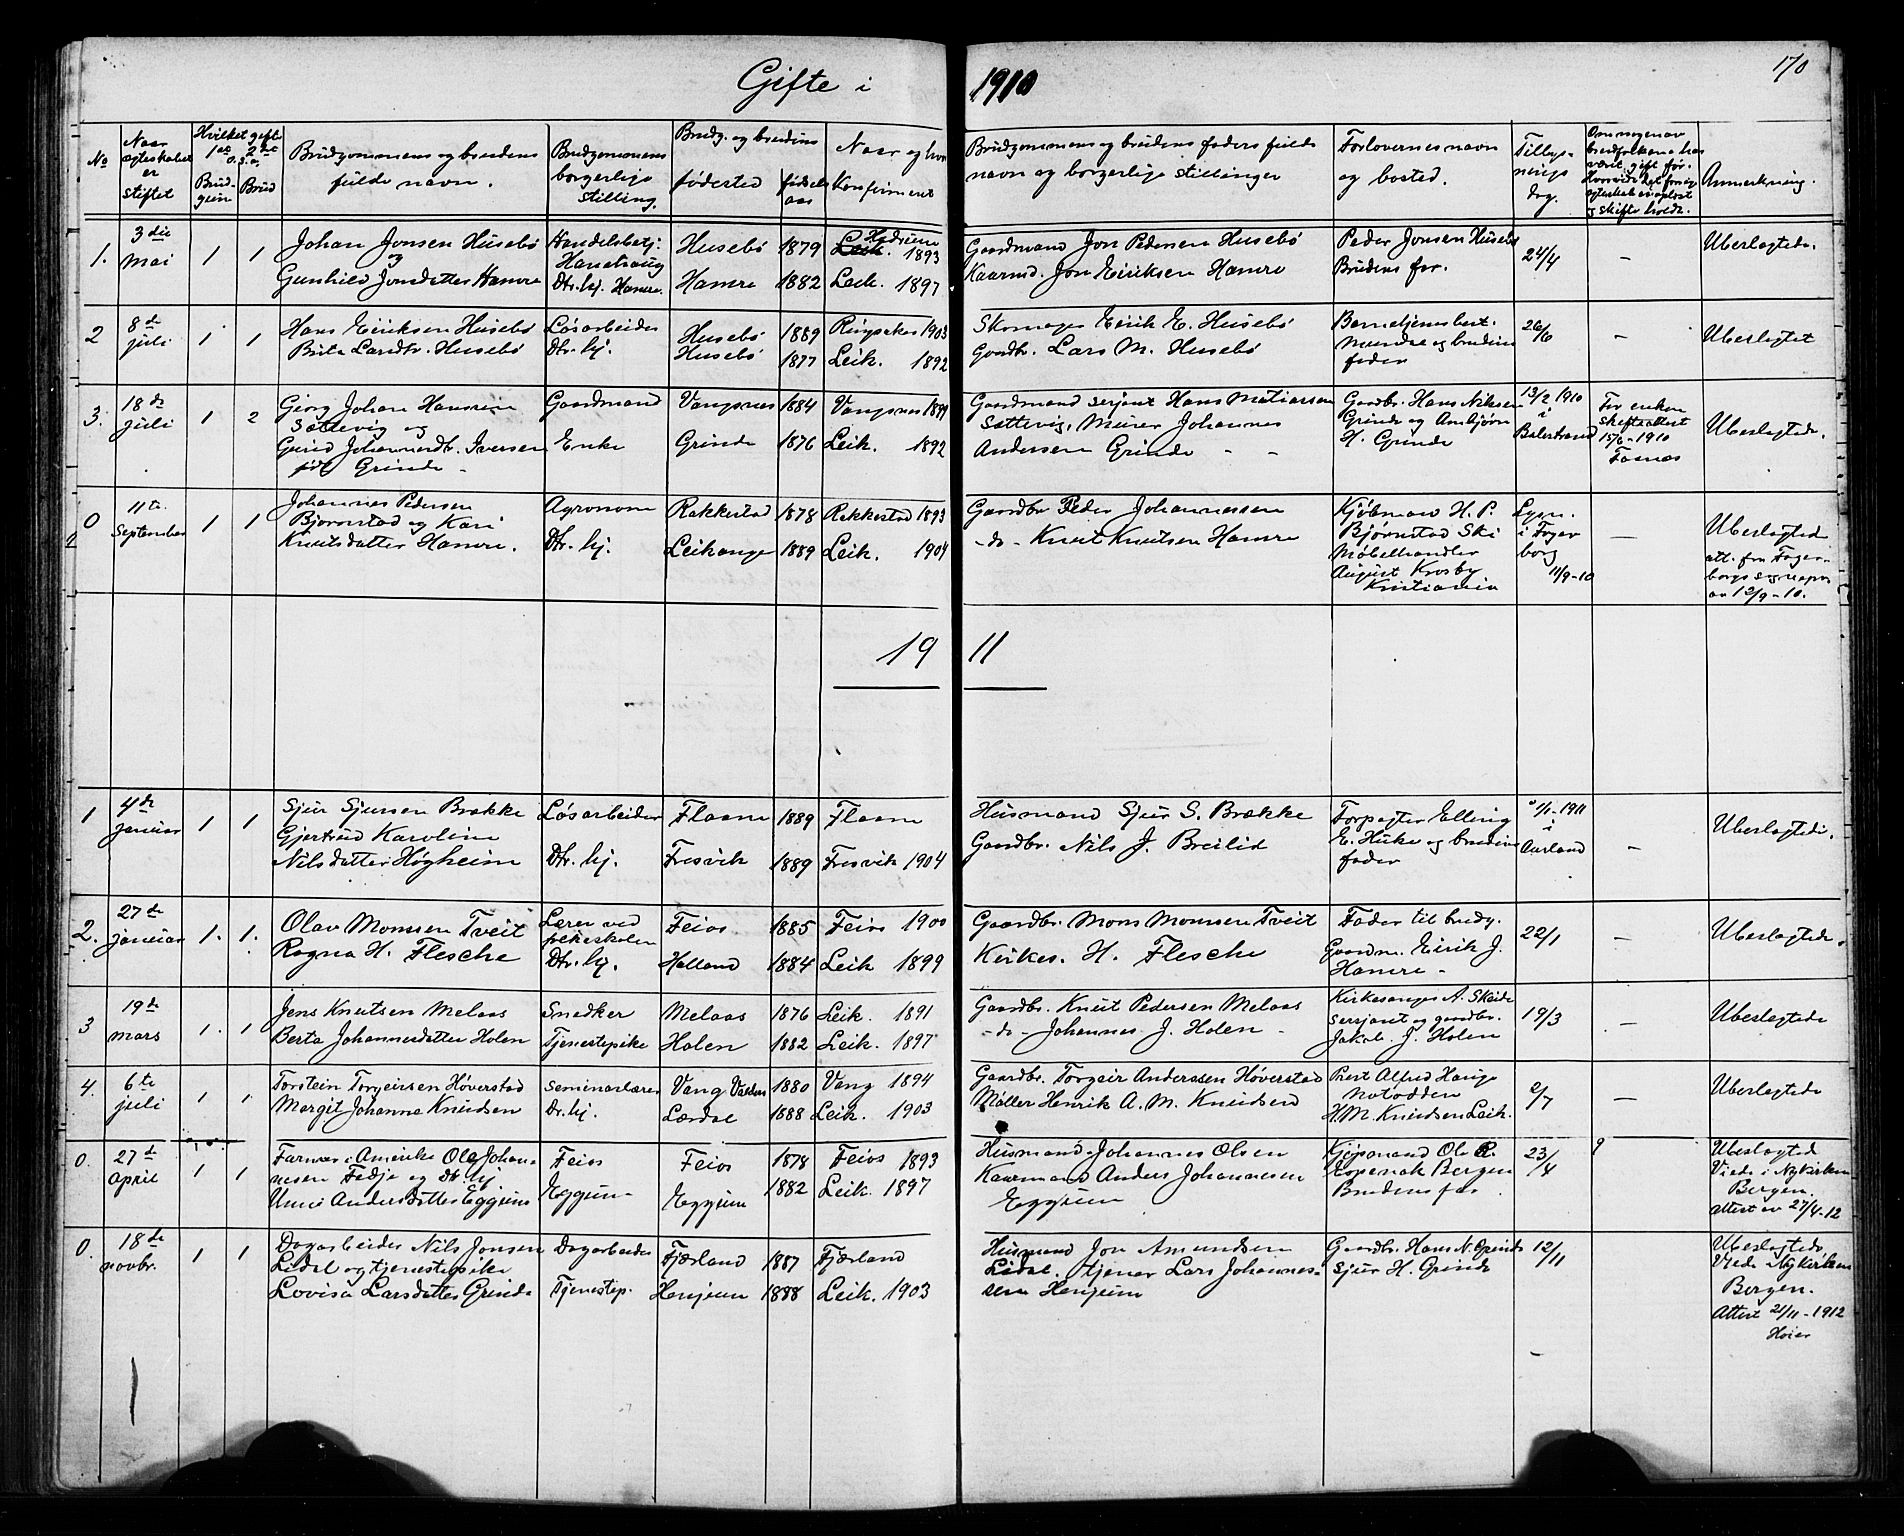 Gifte i 1910
170
No
Naar ægteskabet er stiftet
Hvilket gifte 1ste 2det o.s.v.
Brudgom
Brud
Brudgommens og brudens fulde navn.
Brudgommens borgerlige stilling.
Brudg. og brudens
fødested
fødselsaar
Naar og hvor konfirmeret
Brudgommens og brudens faders fulde navn og borgerlige stillinger
Forlovernes navn og bosted.
Tillysningsdag.
Anmerkning.
1. 3die mai 1 1
Johan Jonsen Husebø
og
Gunhild Jonsdatter Hamre
Husebø 1879 1893
Dtr. hj. Hamre. Hamre 1882 Leik. 1897
Gaardmand Jon Pedersen Husebø
Kaarmd. Jon Eiriksen Hamre
Peder Jonsen Husebø
Brudens far.
24/4
–
Uberlagtede.
2 8de juli 1 1
Hans Eiriksen Husebø Løsarbeider Husebø 1889 Ringsaker 1903
Brita Larsdtr. Husebø Dtr. hj. Husebø 1877 Leik. 1892
Skomager Eirik E. Husebø
Gaardbr. Lars M. Husebø
og brudens
fader
26/6
–
Uberlagtet
3. 18de juli 1 2
Georg Johan Hansen
Sættevig og
Gurid Johannesdtr. Iversen
født Grinde –
Gaardmand Vangsnes 1884 Vangsnes 1899
Enke Grinde 1876 Leik. 1892
Gaardmand serjant Hans Matiassen
Sættevig, Murer Johannes
Andersen Grinde – –
Gaardbr. Hans Nilsen
Grinde og Ambjørn
H. Grinde
13/2 1910
i
Balestrand
For enken
skifteattest
15/6 - 1910
Uberlagtede.
0 11te September 1 1
Johannes Pedersen
Bjørnstad og Kari
Knutsdatter Hamre.
Agronom Rakkestad 1878 Rakkestad 1893
Dtr. hj. Leikanger 1889 Leik. 1904
Gaardbr Peder Johannessen
-do- Knut Knutsen Hamre
Kjøbmand H. P.
Bjørnstad Ski
Møbelhandler
August Krosby
Kristiania
Lysn.
i Fager
borg
11/9-10
–
Uberlagtede
att. fra Fager-
borgs sognepr.
av 12/9-10.
19 11
1 4de januar 1 1
Sjur Sjursen Brække Løsarbeider Flaam 1889 Flaam
Gjertrud Karoline
Nilsdatter Høgheim Dtr. hj. Fresvik 1889 Fresvik 1904
Husmand Sjur S. Brække
Gaardbr. Nils J. Breilid
Forpagter Elling
E. Huke og brudens
fader
1/1-1911
i
Aurland
–
Uberlagtede.
2. 27de januar 1. 1.
Olav Monssen Tveit
Ragna H. Flesche
Lærer ved
folkeskolen Feios 1885 Feios 1900
Dtr. hj. Halland 1884 Leik 1899
Gaardbr. Mons Monssen Tveit
Kirkes. H. Flesche
Fader til brudg.
Gaardm. Eirik J.
Hamre –
22/1
–
Uberlagtede.
3 19de mars 1. 1
Jens Knutsen Melaas Snedker Melaas 1876 Leik. 1891
Berta Johannesdatter Holen Tjenestepike Holen 1882 Leik. 1897
Gaardbr. Knut Pedersen Melaas
-do- Johannes J. Holen –
Kirkesanger A. Skeide
Serjant og gaardbr.
Jakob J. Holen
19/3
–
Uberlagtede
4. 6te juli 1 1
Torstein Torgeirsen Høverstad Seminarlærer Vang Valdres 1880 Vang 1894
Margit Johanne Knudsen Dr. hj. Lærdal 1888 Leik. 1903
Gaardbr. Torgeir Anderssen Høverstad
Møller Henrik A. M. Knudsen
Prest Alfred Hauge
Notodden
H. M. Knudsen Leik.
2/7
–
Uberlagtede
0. 27d april 1 1
Farmer i Amerika Ole Johan-
nesen Fedje og Dtr. hj.
Unni Andersdatter Eggum
Feios Feios 1878 Feios 1893
Eggum Eggum 1882 Leik. 1897
Husmand Johannes Olsen
Kaarmand Anders Johannesen
Eggum
Kjøpmand Ole R.
Kopenak Bergen
Brudens far
23/4
Uberlagtede
Viede i Nykirken
Bergen.
Attest av 27/4-12
0. 18de novbr. 1 1
Dagarbeider Nils Jonsen
Lidal og tjenestepike
Lovisa Larsdatter Grinde
Dagarbeider Fjærland 1887 Fjærland
Tjenestep. Henjum 1888 Leik. 1903
Husmand Jon Amundsen
Lidal, tjener Lars Johannes-
sen Henjum
Gaardbr. Hans N. Grinde
Sjur H. Grinde
12/11
Uberlagtede
Viede Nykirken
Bergen.
Attest 21/11-1912
Høier